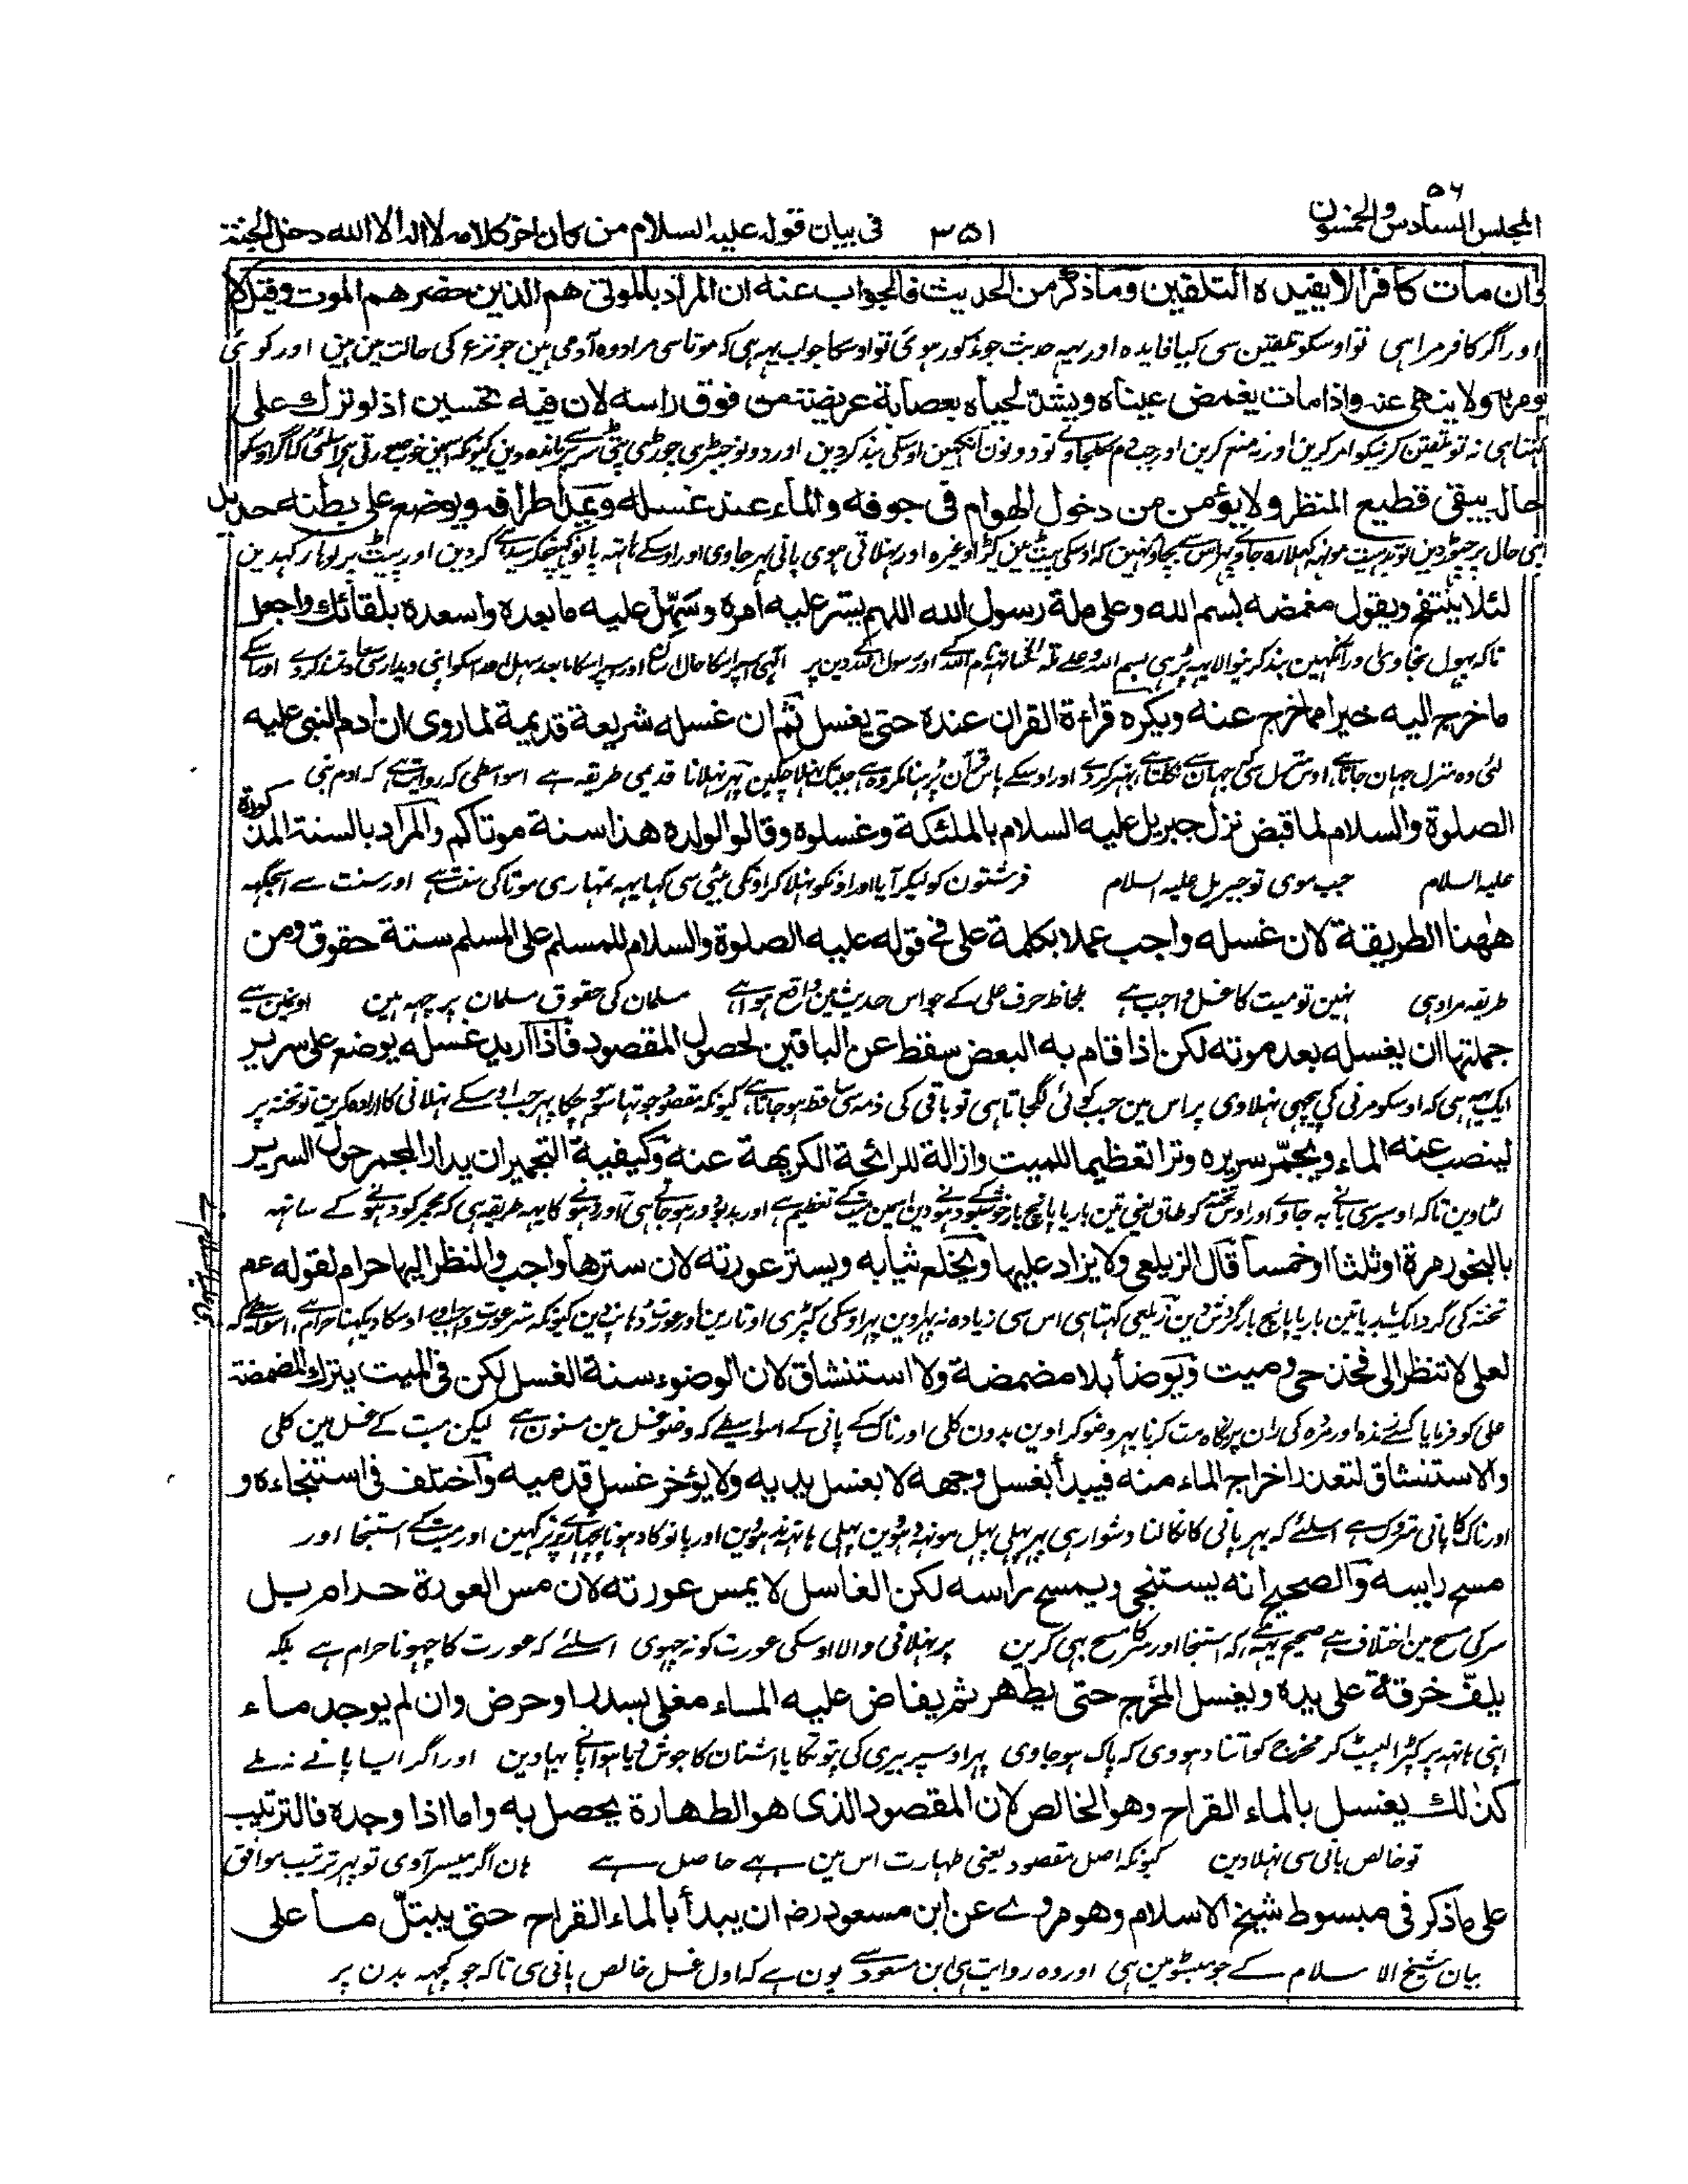 ٥٦
المجلس السادس والخمسون ٣٥١ فی بیان قوله علیه السلام من کان اخر کلامه لا اله الا الله دخل الجنة
وان مات کافرا لا یفیده التلقین وما ذکر من الحدیث فالجواب عنه ان المراد بالموتی هم الذین حضرهم الموت وقیل لا
اور اگر کافر مرا ہی تو اوسکو تلقین سی کیا فایدہ اور یہہ حدیث جو مذکور ہوئی تو اوسکا جواب یہہ ہی کہ موتا سی مراد وہ آدمی ہین جو نزع کی حالت مین ہین اور کوئی
یومر به ولا ینهی عنه واذا مات یغمض عیناه ویشد لحیاه بعصابة عریضة من فوق راسه لان فیه تحسین اذ لو ترك علی
کہتا ہی نہ تو تلقین کرنیکو امر کرین اور نہ منع کرین اور جب دم نکلجاوے تو دونون آنکہین اوسکی بند کر دین اور دونو جبڑی چوڑی پٹی سے سر پر باندہ دین کیونکہ اسمین خوبصورتی ہی اسلئے کہ اگر اوسکو
حال یبقی قطیع المنظر ولا یؤمن من دخول الهوام فی جوفه والماء عند غسله ویمد اطرافه ویوضع علی بطنه حدید
اسی حال پر چہوڑ دین تو بد ہیئت مونہہ کہلا رہ جاوے اور اس سے بچاو نہین کہ اوسکی پیٹ مین کیڑا وغیرہ اور نہلاتی ہوی پانی بہر جاوی اور اوسکے ہاتہہ پانو کہینچکر سیدہے کر دین اور پیٹ پر لوہا رکہدین
لئلا ینتفخ ویقول مغمضه بسم الله وعلی ملة رسول الله اللهم یسر علیه امره وسهل علیه ما بعده واسعده بلقائك واجعل
تاکہ پہول نجاوی اور آنکہین بند کرنیوالا یہہ پڑہی بسم اللہ وعلے ملة الخ ساتہہ نام اللہ کے اور رسول اللہ کے دین پر الہی اسپر اسکا حال آسان کر اور اسپر اسکا مابعد سہل کر اور اسکو اپنی دیدار سی سعادتمند کر دے اور اسکے
ما خرج الیه خیرا مما خرج عنه ویکره قراءة القران عنده حتی یغسل ثم ان غسله شریعة قدیمة لما روی ان ادم النبی علیه
لئی وہ منزل جہان جاتا ہے، اوس منزل سی کہ جہان سے نکلتا ہے، بہتر کر دے اور اوسکے پاس قرآن پڑہنا مکروہ ہے، جبتک نہلا چکین پہر نہلانا قدیمی طریقہ ہے اسواسطی کہ روایت ہے، کہ ادم نبی
الصلوة والسلام لما قبض نزل جبریل علیه السلام بالملئکة وغسلوه وقالوا لولده هذا سنة موتاکم والمراد بالسنة المذکورة
علیہ السلام جب موی تو جبریل علیہ السلام فرشتون کو لیکر آیا اور اونکو نہلا کر اونکی بیٹی سی کہا یہہ تمہاری موتا کی سنت ہے اور سنت سے اسجگہہ
ههنا الطریقة لان غسله واجب عملا بکلمة علی فی قوله علیه الصلوة والسلام للمسلم علی المسلم ستة حقوق ومن
طریقہ مراد ہی نہین تو میت کا غسل واجب ہے بلحاظ حرف علی کے جو اس حدیث مین واقع ہوا ہے مسلمان کی حقوق مسلمان پر چہہ ہین اونمین سے
جملتها ان یغسله بعد موته لکن اذا قام به البعض سقط عن الباقین لحصول المقصود فاذا ارید غسله یوضع علی سریر
ایک یہہ ہی کہ اوسکو مرنی کی پیچہی نہلاوی پر اس مین جب کوئی لگجاتا ہی تو باقی کی ذمہ سی ساقط ہو جاتا ہے، کیونکہ مقصود جو تہا سو ہو چکا پہر جب اوسکے نہلانی کا ارادہ کرین تو تختہ پر
لینصب عنه الماء ویجمر سریره وترا تعظیما للمیت وازالة للرائحة الکریهة عنه وکیفیة التجمیر ان یدار المجمر حول السریر
لٹا دین تاکہ اوسپر سی پانی بہہ جاوے اور اوس تختہ کو طاق یعنی تین بار یا پانچ بار خوشبو کے دہونے دین اسمین میت کی تعظیم ہے اور بدبو دور ہو جاتی ہی اور دہونے کا یہہ طریقہ ہی کہ مجمر کو دہونے کے ساتہہ
بالبخور مرة او ثلثا او خمسا قال الزیلعی ولا یزاد علیها ویخلع ثیابه ویستر عورته لان سترها واجب والنظر الیها حرام لقوله عم
تختہ کی گرد ایک بار یا تین بار یا پانچ بار گردش دین زیلعی کہتا ہی اس سی زیادہ نہ پہراوین پہر اوسکی کپڑی اوتارین اور عورت ڈہانپ دین کیونکہ ستر عورت واجب ہے اور اوسکا دیکہنا حرام ہے، اسواسطے کہ
لعلی لا تنظر الی فخذ حی ومیت ویوضأ بلا مضمضة ولا استنشاق لان الوضوء سنة الغسل لکن فی المیت یترك المضمضة
علی کو فرمایا کہ زندہ اور مردہ کی ران پر نگاہ مت کرنا پہر وضو کراوین بدون کلی اور ناک کے پانی کے اسواسطے کہ وضو غسل مین مسنون ہے لیکن میت کے غسل مین کلی
والاستنشاق لتعذر اخراج الماء منه فیبدأ بغسل وجهه لا بغسل یدیه ولا یؤخر غسل قدمیه واختلف فی استنجاءه و
اور ناک کا پانی متروک ہے اسلئے کہ پہر پانی کا نکالنا دشوار ہی پہر پہلی پہل مونہہ دہووین پہلی ہاتہہ نہ دہووین اور پانو کا دہونا پیچہے نرکہین اور میت کے استنجا اور
مسح راسه والصحیح انه یستنجی ویمسح براسه لکن الغاسل لا یمس عورته لان مس العورة حرام بل
سر کی مسح مین اختلاف ہے صحیح یہہ ہے، کہ استنجا اور سر کا مسح بہی کرین پر نہلانی والا اوسکی عورت کو نہ چہوی اسلئے کہ عورت کا چہونا حرام ہے بلکہ
یلف خرقة علی یده ویغسل المخرج حتی یطهر ثم یفاض علیه الماء مغلی بسدر او حرض وان لم یوجد ماء
اپنی ہاتہہ پر کپڑا لپیٹ کر مخرج کو اتنا دہووی کہ پاک ہو جاوی پہر اوسپر بیری کی پتونکا یا اشنان کا جوش دیا ہوا پانے بہادین اور اگر ایسا پانے نہ ملے
کذلك یغسل بالماء القراح وهو الخالص لان المقصود الذی هو الطهارة یحصل به واما اذا وجده فالترتیب
تو خالص پانی سی نہلا دین کیونکہ اصل مقصود یعنی طہارت اس مین ہے حاصل ہے ہان اگر میسر آوی تو پہر ترتیب موافق
علی ما ذکر فی مبسوط شیخ الاسلام وهو مروے عن ابن مسعود رضه ان یبدأ بالماء القراح حتی یبتل ما علی
بیان شیخ الاسلام کے جو مبسوط مین ہی اور وہ روایت ہی ابن مسعود سے یون ہے کہ اول غسل خالص پانی سی تاکہ جو کچہہ بدن پر